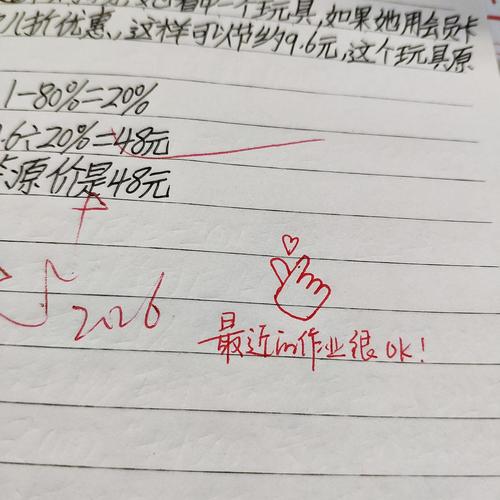 一个玩具,如果她用会员卡
八折优惠,这样可以节约9.6元,这个玩具原
1-80%=20%
.6÷20%=48元
原价是48元
2026
最近的作业很OK!